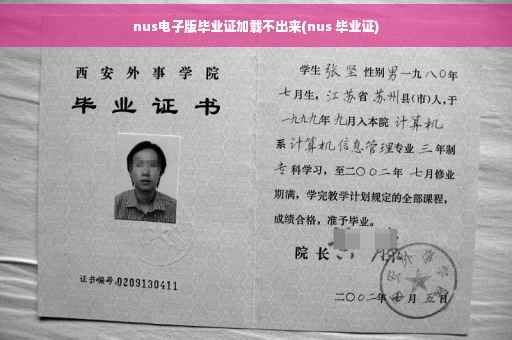 nus电子版毕业证加载不出来(nus 毕业证)
西安外事学院
毕业证书
证书编号:0209130411
学生 张坚 性别男一九八〇年
七月生,江苏省苏州县(市)人,于
一九九九年九月入本院 计算机
系 计算机信息管理专业 三 年制
专 科学习,至二〇〇二年 七月修业
期满,学完教学计划规定的全部课程,
成绩合格,准予毕业。
院长
二〇〇二年 月五日